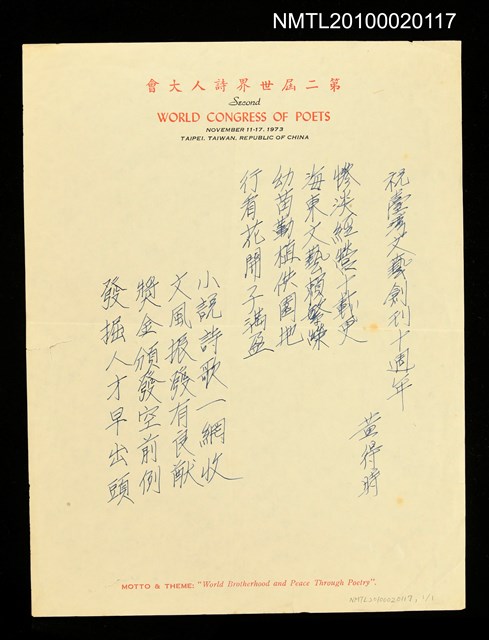 NMTL20100020117
第二屆世界詩人大會
Second
WORLD CONGRESS OF POETS
NOVEMBER 11-17, 1973
TAIPEI, TAIWAN, REPUBLIC OF CHINA
祝臺湾文藝創刊十週年
黃得時
慘淡經營十載更
海東文藝頼繁榮
幼苗勤植供園地
行看花開子滿盈
小說詩歌一網收
文風振發有良猷
獎金頒發空前例
發掘人才早出頭
MOTTO & THEME: "World Brotherhood and Peace Through Poetry".
NMTL20100020117, 1/1